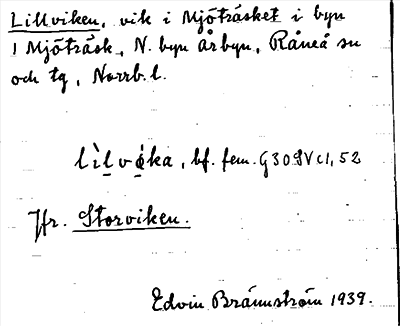 Lillviken, vik i Mjöträsket i byn
1 Mjöträsk, N. byn årbyn, Råneå sn
och tg, Norrb. l.
lìlvíka, bf. fem.
Jfr. Storviken.
Edvin Brännström 1939.